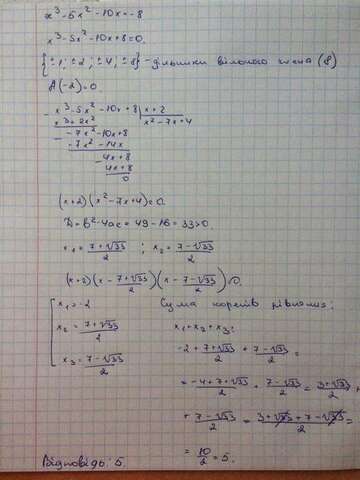 x³-5x²-10x=-8
x³-5x²-10x+8=0.
{±1; ±2; ±4; ±8} - дільники вільного члена (8)
A(-2)=0.
x³-5x²-10x+8 | x+2
x³+2x² | x²-7x+4
-7x²-10x+8
-7x²-14x
4x+8
4x+8
0
(x+2)(x²-7x+4)=0.
D=b²-4ac=49-16=33>0.
x₁=(7+√33)/2; x₂=(7-√33)/2
(x+2)(x-(7+√33)/2)(x-(7-√33)/2)=0.
[x₁=-2
x₂=(7+√33)/2
x₃=(7-√33)/2
Сума коренів рівняння:
x₁+x₂+x₃:
-2+(7+√33)/2+(7-√33)/2=
=(-4+7+√33)/2+(7-√33)/2=(3+√33)/2+
+(7-√33)/2=(3+√33+7-√33)/2=
=10/2=5.
Відповідь: 5.